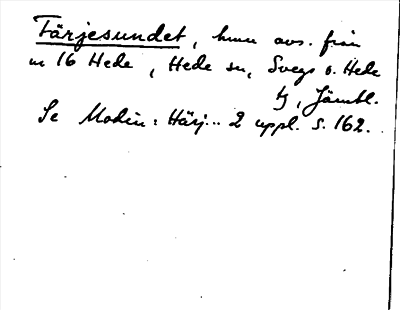 Färjesundet, hmn avs. från
n 16 Hede, Hede sn, Svegs o. Hede
tg, Jämtl.
Se Modin: Härj... 2 uppl. s. 162.